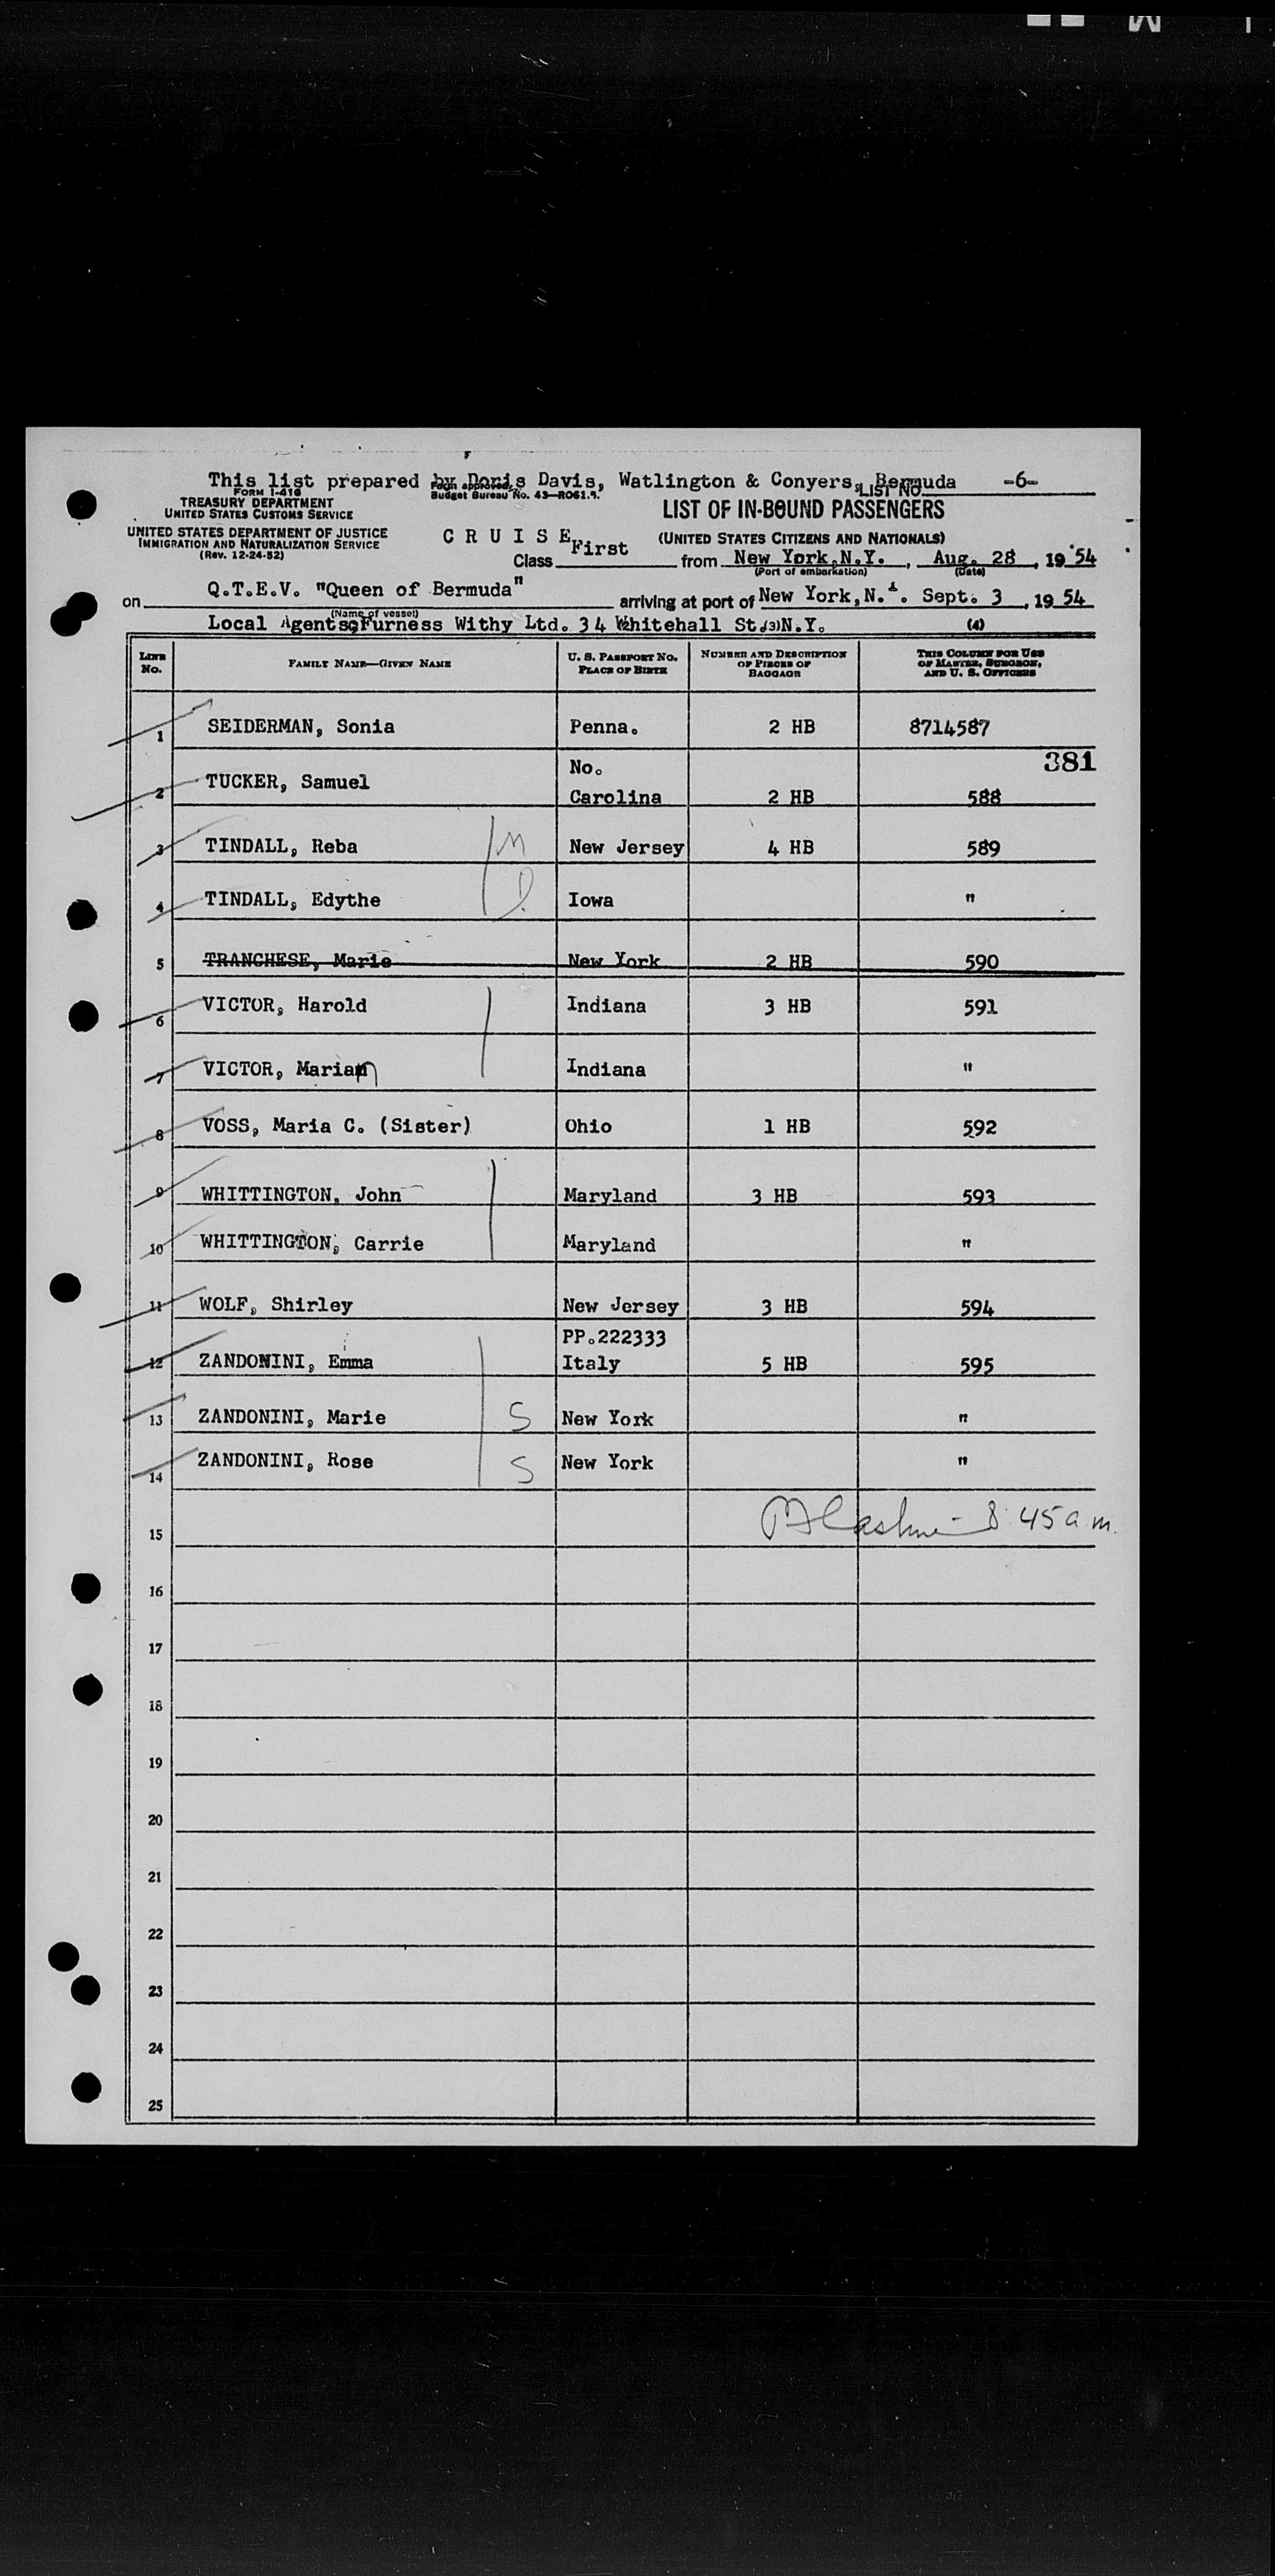 This list prepared by Doris Davis, Watlington & Conyers, Bermuda -6-
FORM I-416
Form approved.
Budget Bureau No. 43—RO61.
LIST NO.
TREASURY DEPARTMENT
UNITED STATES CUSTOMS SERVICE
LIST OF IN-BOUND PASSENGERS
UNITED STATES DEPARTMENT OF JUSTICE
IMMIGRATION AND NATURALIZATION SERVICE
(Rev. 12-24-52)
CRUISE
(UNITED STATES CITIZENS AND NATIONALS)
Class First from New York,N.Y. , Aug. 28 , 19 54
(Port of embarkation) (Date)
on Q.T.E.V. "Queen of Bermuda" arriving at port of New York, N.Y. Sept. 3 , 19 54
(Name of vessel)
Local Agents Furness Withy Ltd. 34 Whitehall St. N.Y.
(3) (4)
LINE No. FAMILY NAME—GIVEN NAME U. S. PASSPORT NO. PLACE OF BIRTH NUMBER AND DESCRIPTION OF PIECES OF BAGGAGE THIS COLUMN FOR USE OF MASTER, SURGEON, AND U. S. OFFICERS
1 SEIDERMAN, Sonia Penna. 2 HB 8714587
381
2 TUCKER, Samuel No. Carolina 2 HB 588
3 TINDALL, Reba M New Jersey 4 HB 589
4 TINDALL, Edythe D. Iowa "
5 TRANCHESE, Marie New York 2 HB 590
6 VICTOR, Harold Indiana 3 HB 591
7 VICTOR, Marian Indiana "
8 VOSS, Maria C. (Sister) Ohio 1 HB 592
9 WHITTINGTON, John Maryland 3 HB 593
10 WHITTINGTON, Carrie Maryland "
11 WOLF, Shirley New Jersey 3 HB 594
12 ZANDONINI, Emma PP.222333 Italy 5 HB 595
13 ZANDONINI, Marie S New York "
14 ZANDONINI, Rose S New York "
8:45 a.m.
15
16
17
18
19
20
21
22
23
24
25